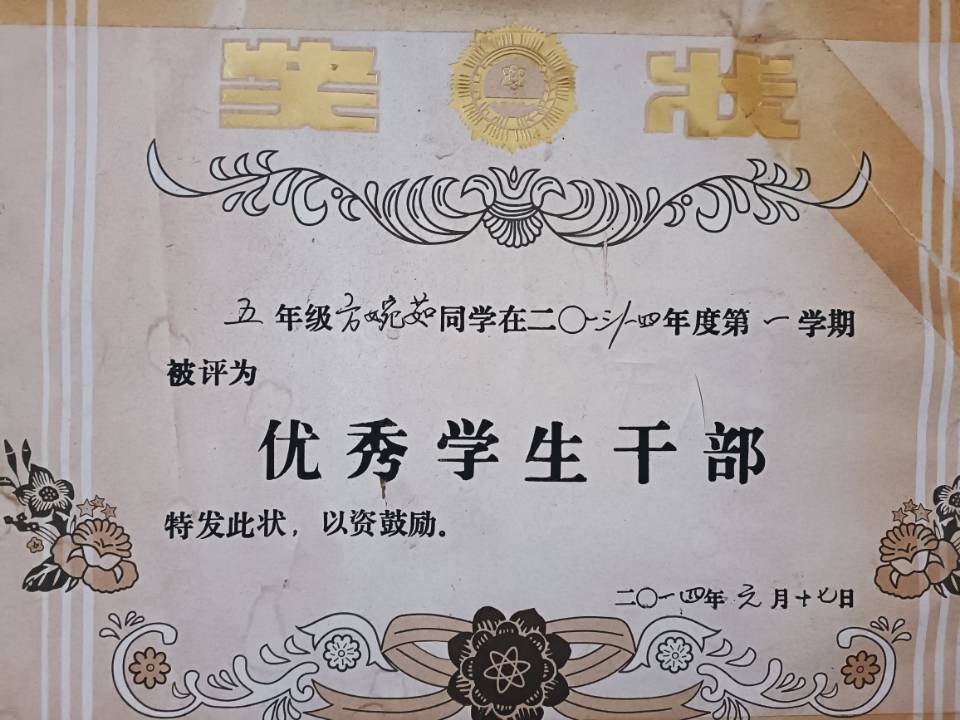 奖状
五年级方婉茹同学在二〇一三/一四年度第一学期
被评为
优秀学生干部
特发此状，以资鼓励。
二〇一四年元月十七日